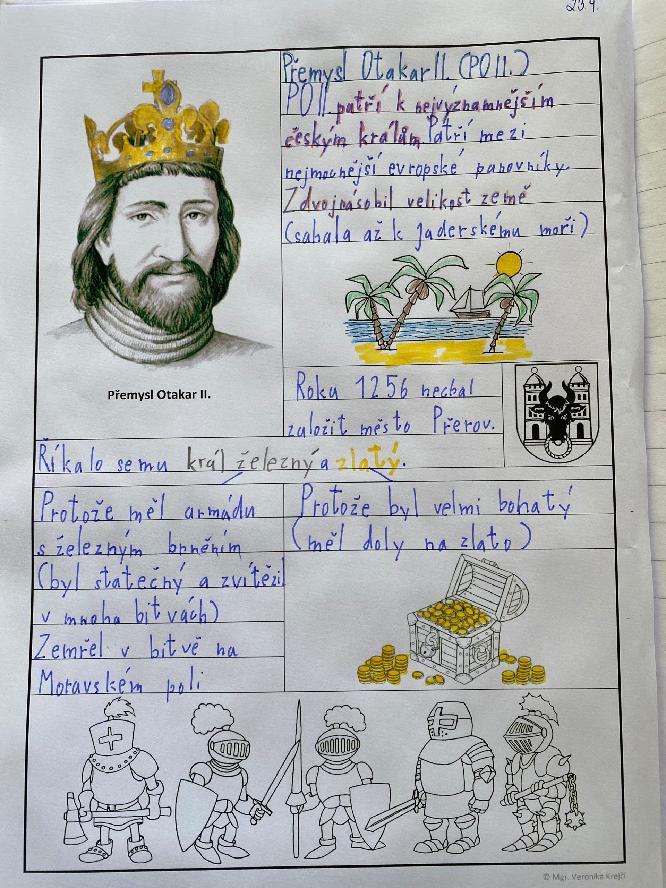 23.9.
Přemysl Otakar II. (PO II.)
PO II patří k nejvýznamnějším
českým králům Patří mezi
nejmocnější evropské panovníky.
Zdvojnásobil velikost země
(sahala až k Jaderskému moři)
Přemysl Otakar II.
Roku 1256 nechal
založit město Přerov.
Říkalo se mu král železný a zlatý.
Protože měl armádu
s železným brněním
(byl statečný a zvítězil
v mnoha bitvách)
Zemřel v bitvě na
Moravském poli
Protože byl velmi bohatý
(měl doly na zlato)
© Mgr. Veronika Krejčí